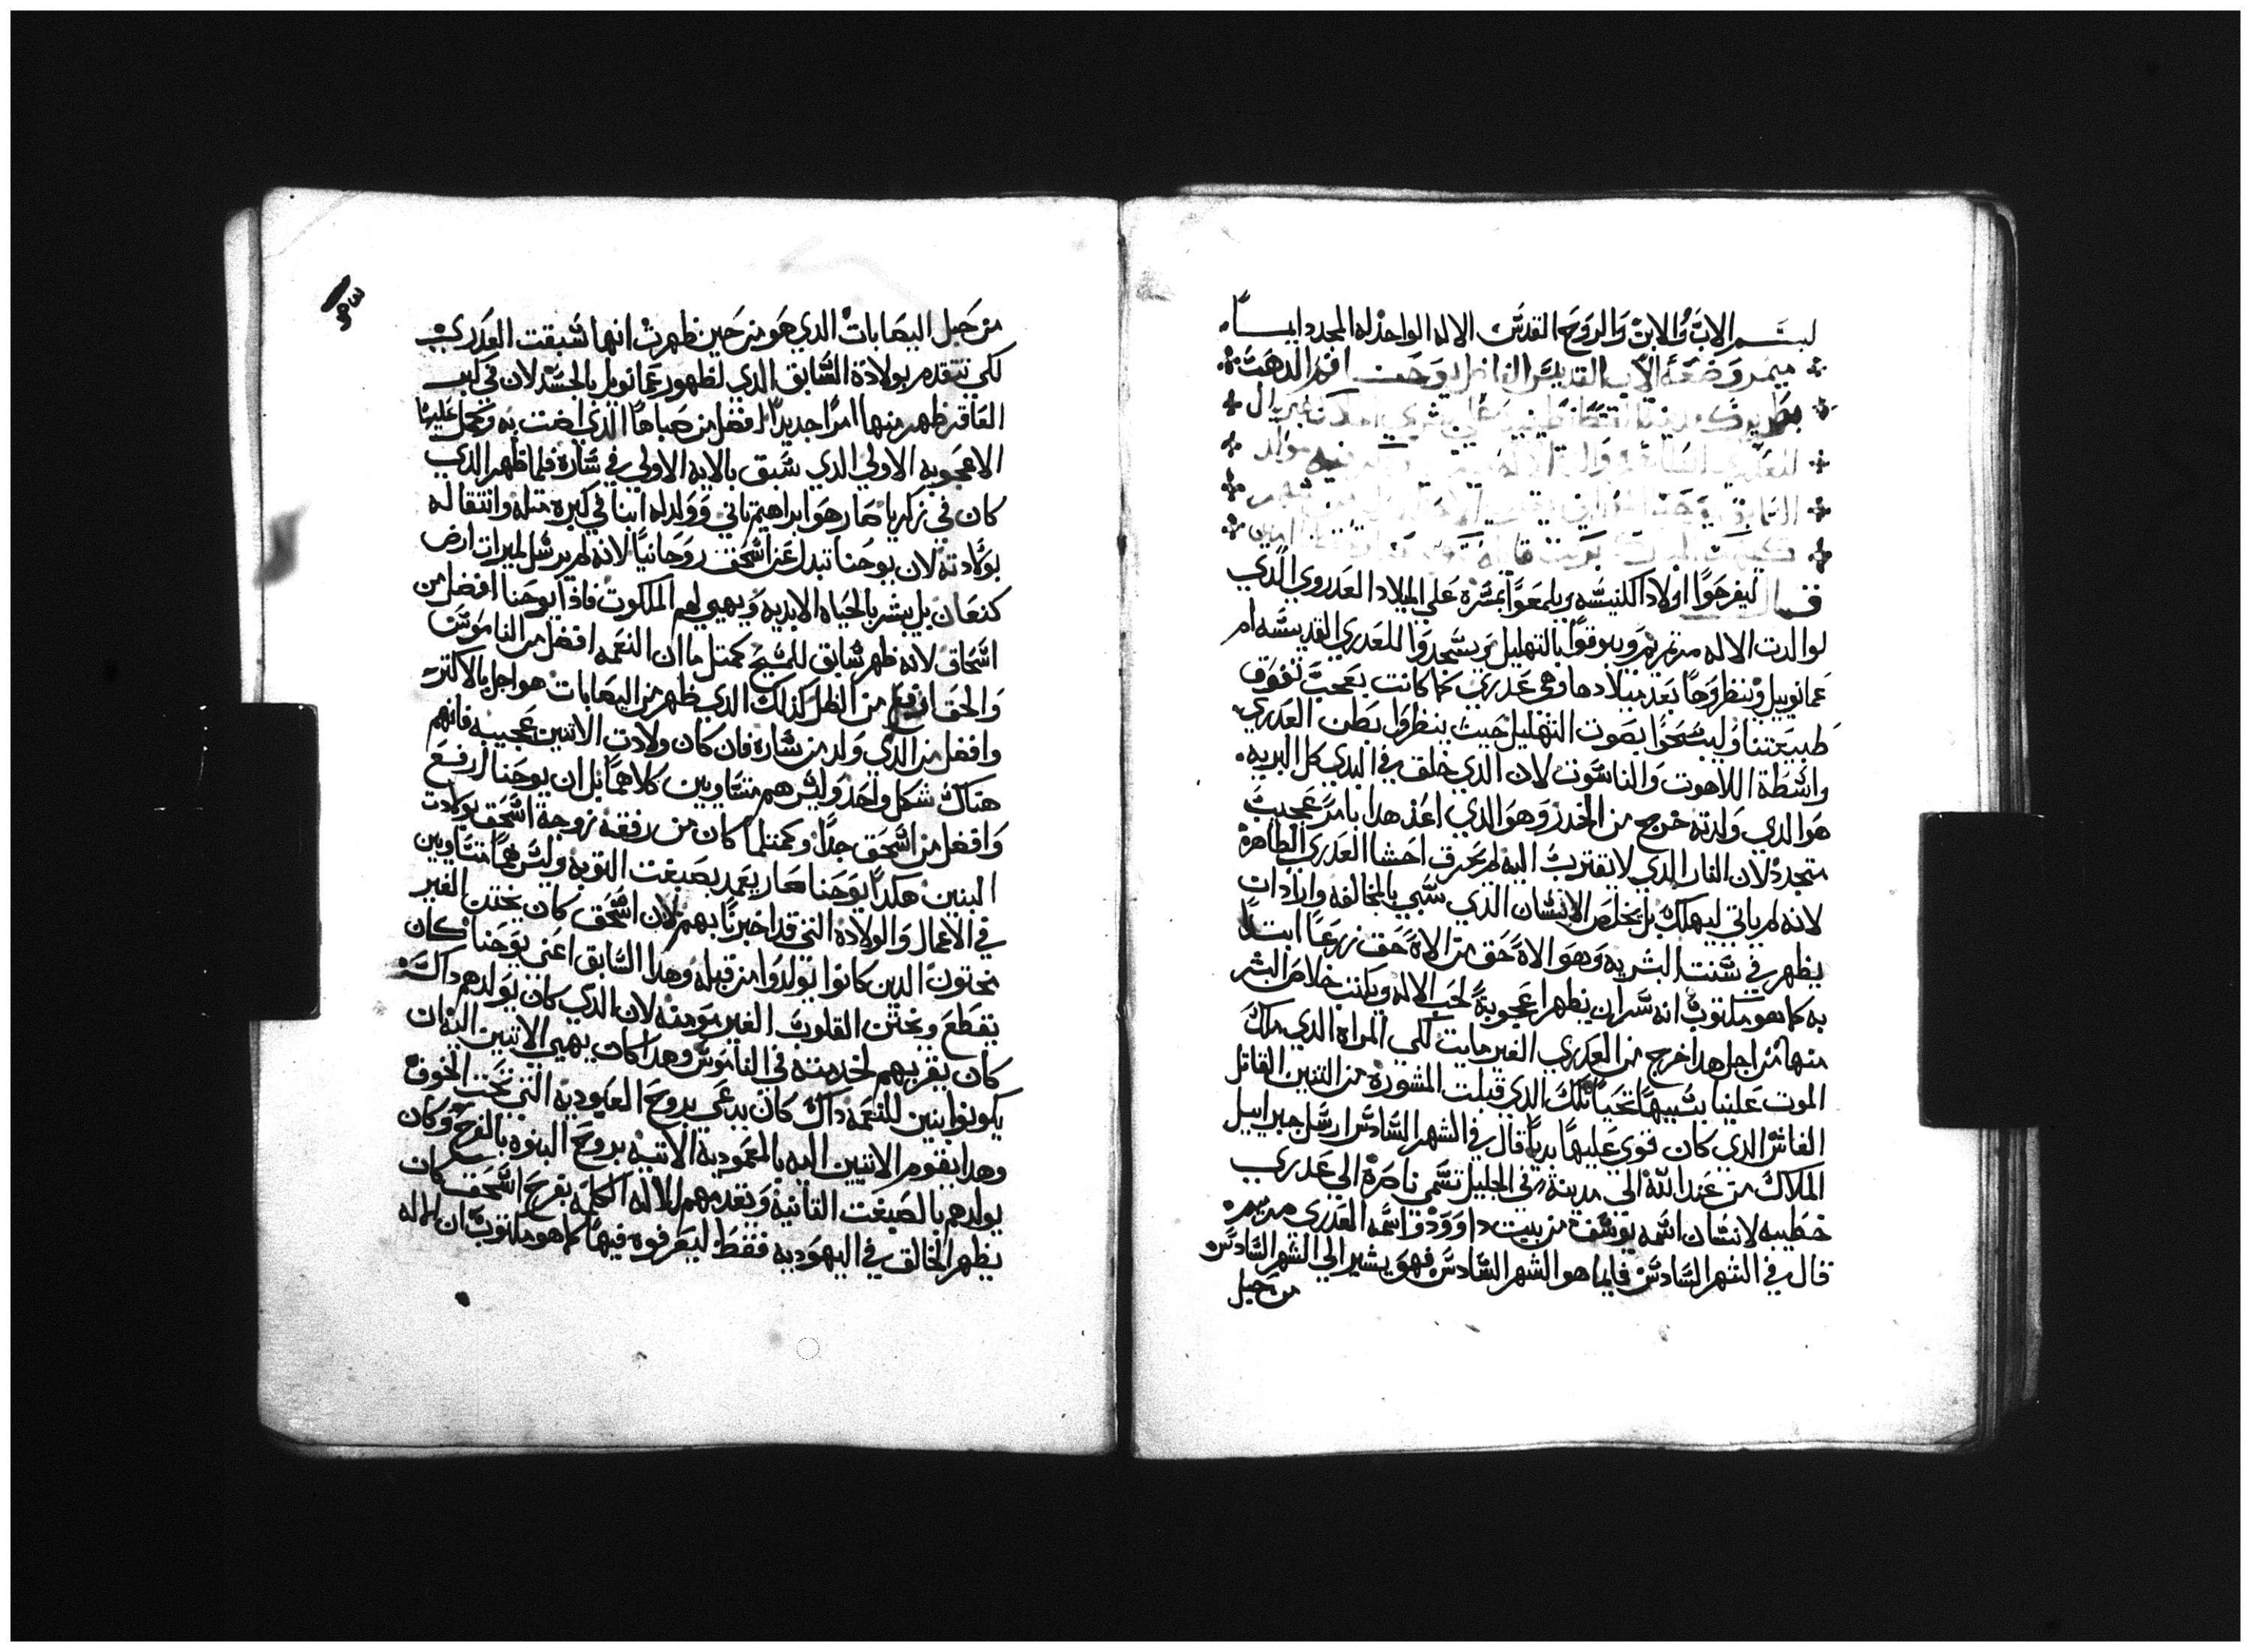 بسم الاب والابن والروح القدس الاله الواحد له المجد دايما
ميمر وضعه الاب القديس الفاضل يوحنا فم الدهب
بطريرك
السابق يوحنا
قال ليفرحوا اولاد الكنيسه ويلمعوا بمسره علي الميلاد العدروي الدي
لوالدت الاله مرتمريم ويبوقوا بالتهليل ويسجدوا للعدري القديسه ام
عمانوييل وننظروها بعد ميلادها وهي عدري كما كانت بعجب تفوق
طبيعتنا وليسبحوا بصوت التهليل حيث ينظروا بطن العدري
واسطة اللاهوت والناسوت لان الدي خلق في البدي كل البريه
هو الدي ولدته خرج من الخدر وهو الدي اعد هدا بامر عجيب
متجدد لان النار الدي لا تقترب اليه لم تحرق احشا العدري الطاهرة
لانه لم ياتي ليهلك بل يخلص الانسان الدي سبي بالمخالفه واراد ان
يظهر في سنت البشريه وهو الاه حق من الاه حق زرعا ابتدا
به كما هو مكتوب انه سر ان يظهر اعجوبة لحب الاله ويكنت خلاص البشر
منها من اجل هدا خرج من العدري الغير مايت لكي المراه الدي ملك
الموت علينا بسببها تحيا تلك الدي قبلت المشورة من التنين القاتل
الغاش الدي كان قوي عليها بديا قال في الشهر السادس ارسل جبراييل
الملاك من عند الله الي مدينة في الجليل تسمي ناصرة الي عدري
خطيبه لانسان اسمه يوسف من بيت داوود واسم العدري مريم
قال في الشهر السادس فايما هو الشهر السادس فهو يشير الي الشهر السادس
من حبل
من حبل اليصابات الدي هو من حين ظهرت انها سبقت العدري
لكي تتقدم بولادة السابق الدي لظهور عمانويل بالجسد لان في
العاقر ظهر منها امرا جديدا افضل من صباها الدي اضت به وتحمل عليها
الاعجوبه الاولي الدي سبق بالايه الاولي في سارة فلما ظهر الدي
كان في زكريا صار هو ابراهيم تاني وولد له ابنا في كبره متله وانتقاله
بولادته لان يوحنا تبدل عن اسحق روحانيا لانه لم يرسل لميرات ارض
كنعان بل يبشر بالحياه الابديه ويهيي لهم الملكوت فادا يوحنا افضل من
اسحاق لانه ظهر سابق للمسيح كمتل ما ان النعمه افضل من الناموس
والحق ارفع من الظل كدلك الدي ظهر من اليصابات هو اجل بالاكتر
وافضل من الدي ولد من سارة فان كان ولادت الاتنين عجيبه فانهم
هناك شكل واحد وليس هم متساويين كلاهما بل ان يوحنا ارفع
وافضل من اسحق جدا وكمتلما كان من رفقه زوجة اسحق بولادت
البنين هكدا يوحنا صار يعمد بصبغت التوبه وليس هما متساويين
في الاعمال والولادة التي قد اخبرنا بهم لان اسحق كان يختن الغير
مختون الدين كانوا يولدوا من قبله وهدا السابق اعني يوحنا كان
يقطع ويختن القلوب الغير مومنه لان الدي كان يولدهم داك
كان يقربهم لخدمته في الناموس وهدا كان يهيي الاتنين اليه ان
يكونوا بنين للنعمه داك كان يدعي بروح العبوديه التي تحت الخوف
وهدا يقوم الاتيين اليه بالمعموديه الاتيه بروح البنوه بالفرح وكان
يولدهم بالصبغت التانية وتقدمهم للاله الكلمه بفرح اسحق كان
يظهر الخالق في اليهوديه فقط ليعرفوه فيها كما هو مكتوب ان الاله